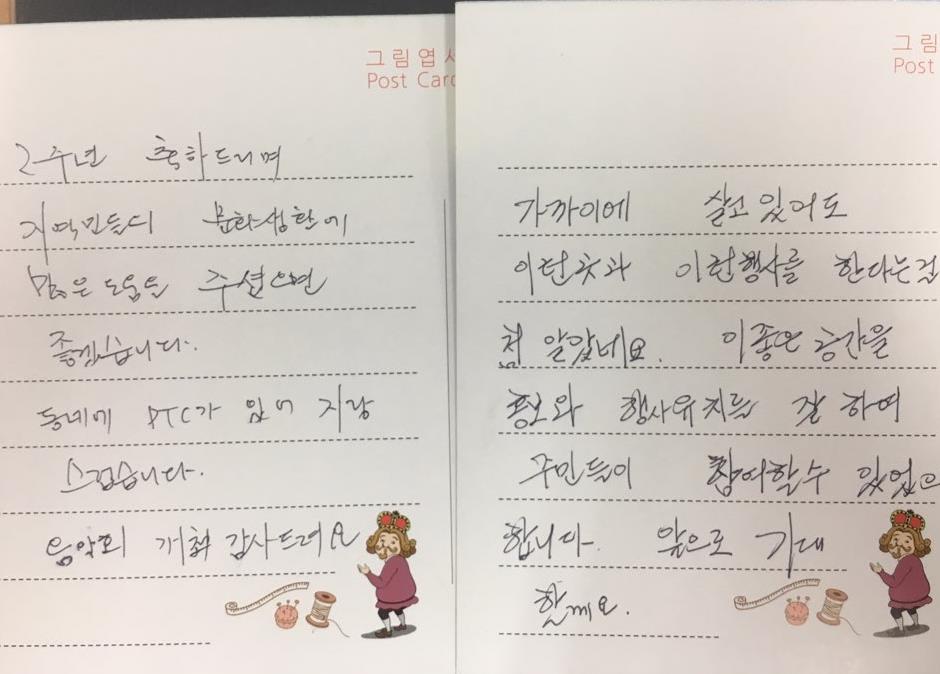 그림엽서
Post Card
2주년 축하드리며
지역민들의 문화생활에
많은 도움을 주셨으면
좋겠습니다.
동네에 PTC가 있어 자랑
스럽습니다.
음악회 개최 감사드려요
그림
Post
가까이에 살고 있어도
이런 곳과 이런행사를 한다는걸
첨 알았네요. 이좋은 공간을
홍보와 행사유치를 잘 하여
주민들이 참여할수 있었으
합니다. 앞으로 기대
할께요.